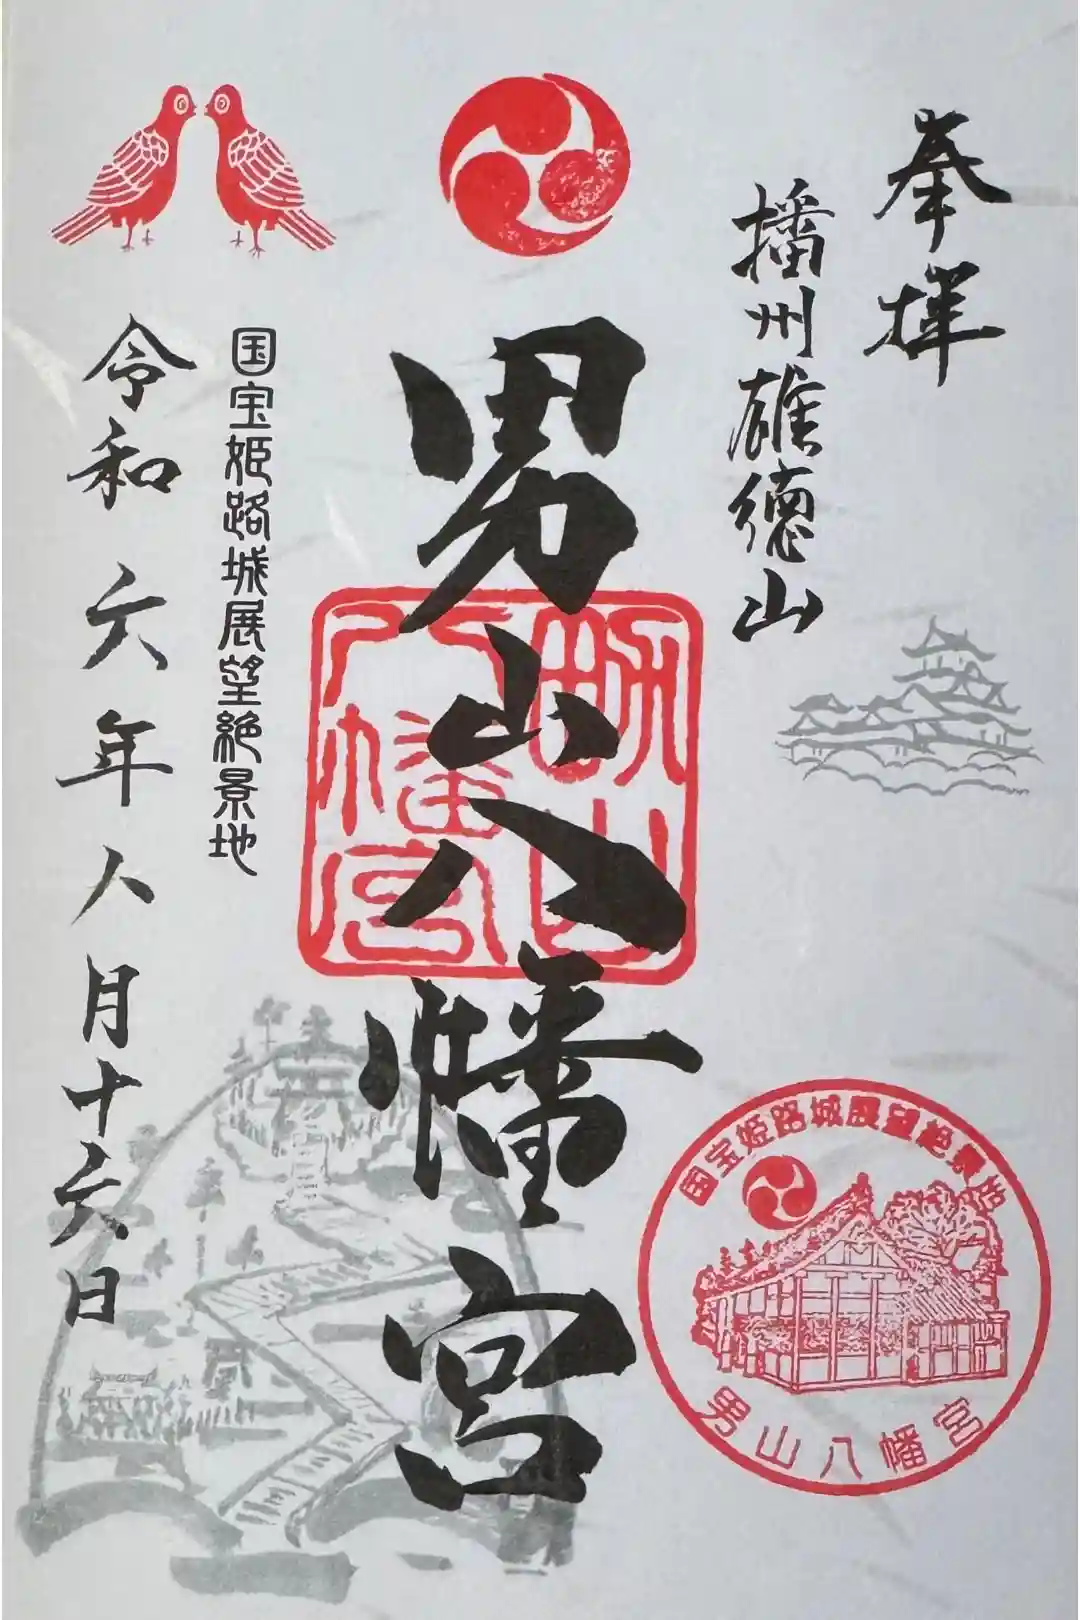 奉拝
播州雄徳山
男山八幡宮
男山
八幡宮
国宝姫路城展望絶景地
令和六年八月十六日
国宝姫路城展望絶景地
男山八幡宮